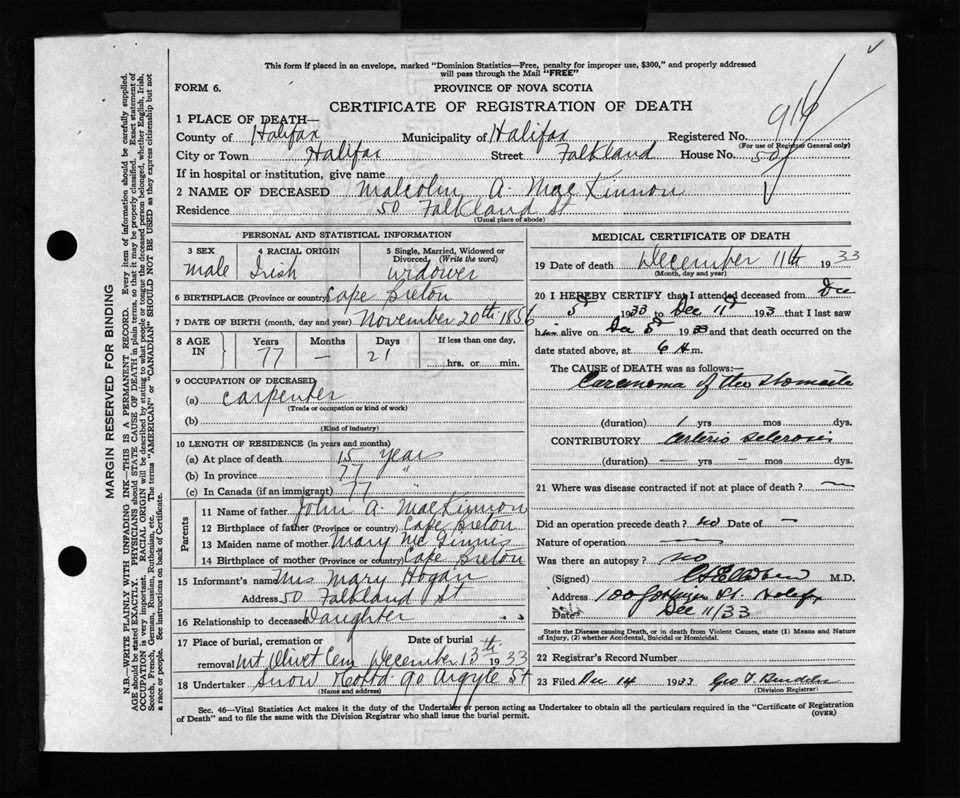 This form if placed in an envelope, marked "Dominion Statistics—Free, penalty for improper use, $300," and properly addressed
will pass through the Mail "FREE"
FORM 6.
PROVINCE OF NOVA SCOTIA
CERTIFICATE OF REGISTRATION OF DEATH
916
1 PLACE OF DEATH—
County of Halifax Municipality of Halifax Registered No.
(For use of Registrar General only)
City or Town Halifax Street Falkland House No. 50
If in hospital or institution, give name
2 NAME OF DECEASED Malcolm A. MacKinnon
Residence 50 Falkland St
(Usual place of abode)
PERSONAL AND STATISTICAL INFORMATION
3 SEX 4 RACIAL ORIGIN 5 Single, Married, Widowed or Divorced (Write the word)
male Irish widower
6 BIRTHPLACE (Province or country) Cape Breton
7 DATE OF BIRTH (month, day and year) November 20th 1856
8 AGE IN Years Months Days If less than one day,
77 — 21 hrs. or min.
9 OCCUPATION OF DECEASED
(a) carpenter
(Trade or occupation or kind of work)
(b)
(Kind of industry)
10 LENGTH OF RESIDENCE (in years and months)
(a) At place of death 15 years
(b) In province 77 "
(c) In Canada (if an immigrant) 77 "
Parents
11 Name of father John A. MacKinnon
12 Birthplace of father (Province or country) Cape Breton
13 Maiden name of mother Mary McGinnis
14 Birthplace of mother (Province or country) Cape Breton
15 Informant's name Mrs Mary Hogan
Address 50 Falkland St
16 Relationship to deceased Daughter
17 Place of burial, cremation or removal Mt Olivet Cem Date of burial December 13th 1933
18 Undertaker Snow & Co Ltd. 90 Argyle St
(Name and address)
MEDICAL CERTIFICATE OF DEATH
19 Date of death December 11th 1933
(Month, day and year)
20 I HEREBY CERTIFY that I attended deceased from Dec
5th 1933 to Dec 11th 193 that I last saw
him alive on Dec 5th 1933 and that death occurred on the
date stated above, at 6 A m.
The CAUSE of DEATH was as follows:—
Carcinoma of the stomach
(duration) 1 yrs mos dys.
CONTRIBUTORY Arterio sclerosis
(duration) — yrs — mos dys.
21 Where was disease contracted if not at place of death?
Did an operation precede death? no Date of —
Nature of operation
Was there an autopsy? no
(Signed) M.D.
Address 100
Date Dec 11/33
State the Disease causing Death, or in death from Violent Causes, state (1) Means and Nature of Injury, (2) whether Accidental, Suicidal or Homicidal.
22 Registrar's Record Number
23 Filed Dec 14 1933 Geo
(Division Registrar)
Sec. 46—Vital Statistics Act makes it the duty of the Undertaker or person acting as Undertaker to obtain all the particulars required in the "Certificate of Registration
of Death" and to file the same with the Division Registrar who shall issue the burial permit.
(OVER)
MARGIN RESERVED FOR BINDING
N.B.—WRITE PLAINLY WITH UNFADING INK—THIS IS A PERMANENT RECORD. Every item of information should be carefully supplied.
AGE should be stated EXACTLY. PHYSICIANS should STATE CAUSE OF DEATH in plain terms, so that it may be properly classified. Exact statement of
OCCUPATION is very important. RACIAL ORIGIN will be described by stating to what people or tongue the deceased person belonged, whether English, Irish,
Scotch, French, German, Russian, Ruthenian, etc. The terms "AMERICAN" or "CANADIAN" SHOULD NOT BE USED as they express citizenship but not
a race or people. See instructions on back of Certificate.